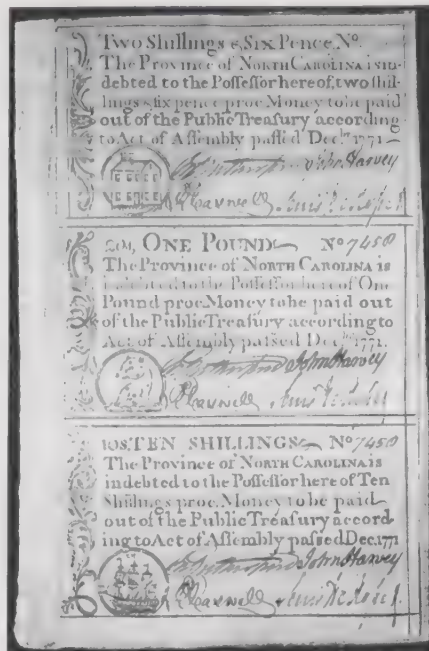 Two Shillings & Six Pence, No.
The Province of NORTH CAROLINA is in-
debted to the Poſſeſſor here of, two ſhil-
lings & ſix pence proc. Money to be paid
out of the Public Treaſury according
to Act of Aſſembly paſſed Decbr. 1771
John Harvey
20s, ONE POUND No 7458
The Province of NORTH CAROLINA is
indebted to the Poſſeſſor here of One
Pound proc. Money to be paid out
of the Public Treaſury according to
Act of Aſſembly paſſed Decbr. 1771.
Rutherfurd John Harvey
Caswell
10S, TEN SHILLINGS No 7458
The Province of NORTH CAROLINA is
indebted to the Poſſeſſor here of Ten
Shillings proc. Money to be paid
out of the Public Treaſury accord-
ing to Act of Aſſembly paſſed Dec. 1771
Rutherfurd John Harvey
Caswell